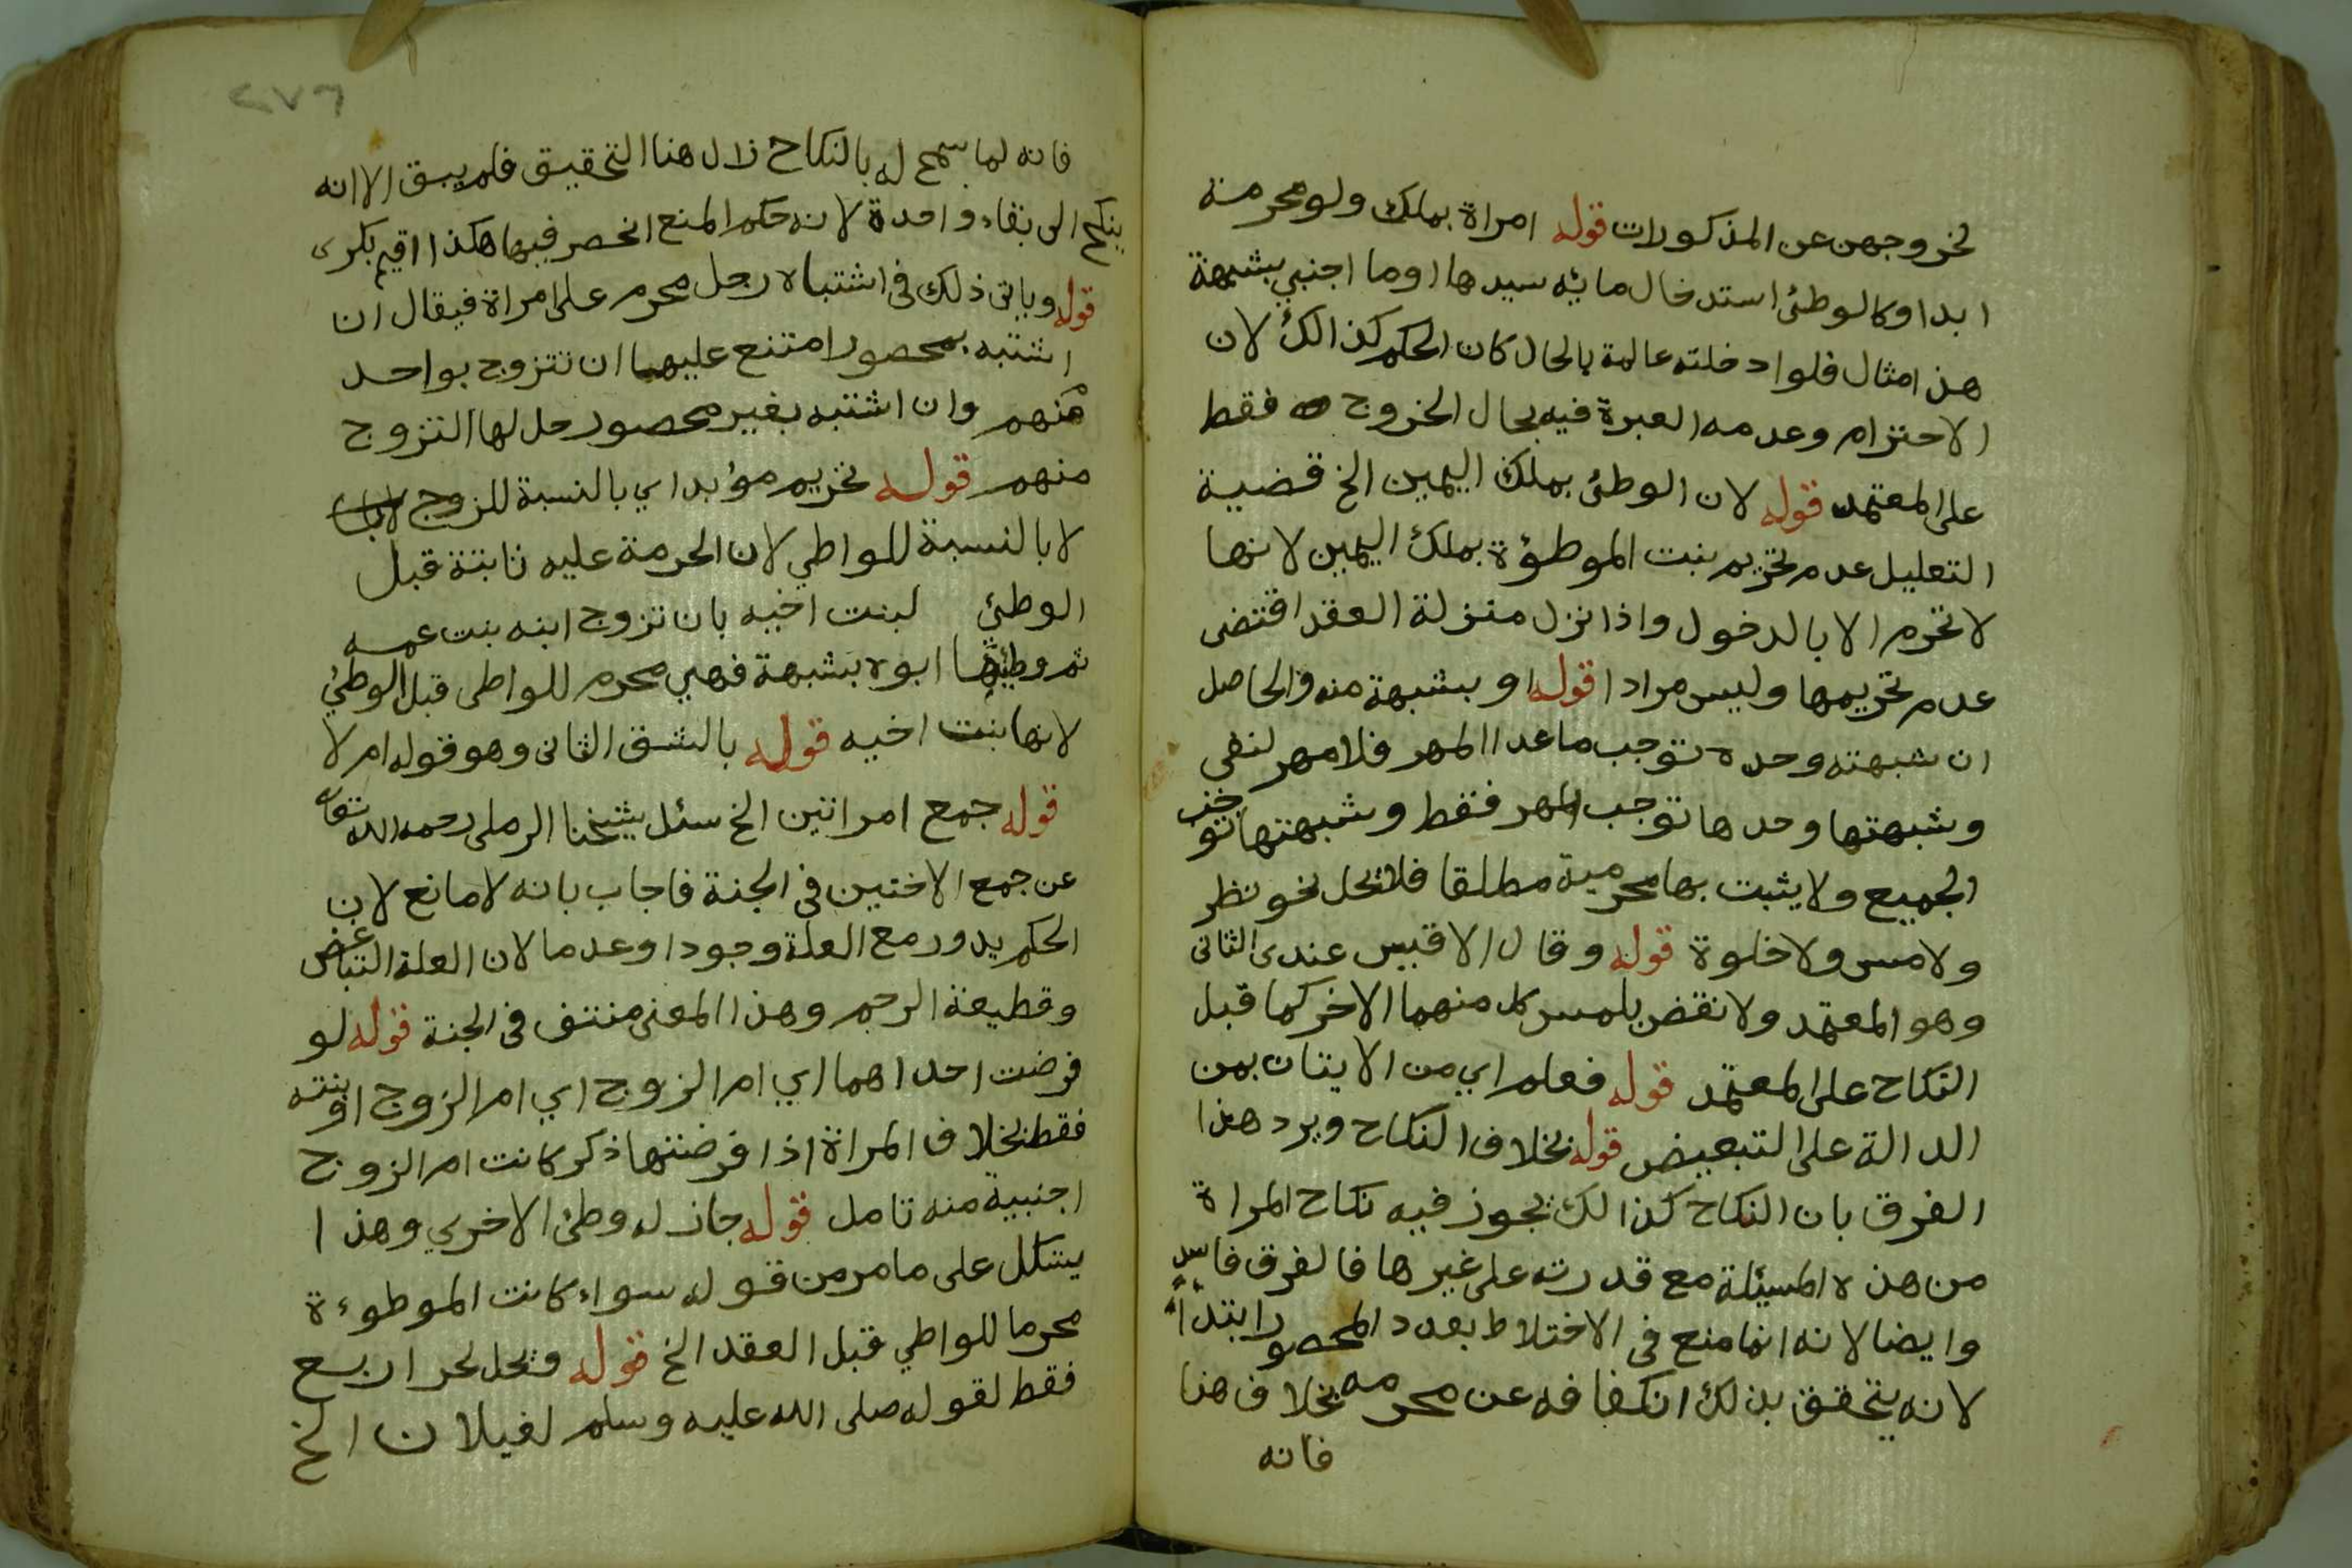 لخروجهن عن المذكورات قوله امراة بملك ولو محرمة
ابدا وكالوطئ استدخال مائه سيدها او ما اجنبي بشبهة
هذ امثال فلو ادخلته عالمة بالحال كان الحكم كذالك لان
الاحتزام وعدمه العبرة فيه بحال الخروج فقط
على المعتمد قوله لان الوطئ بملك اليمين الخ قضية
التعليل عدم تحريم بنت الموطؤة بملك اليمين لانها
لا تحرم الا بالدخول واذا نزل منزلة العقد اقتضى
عدم تحريمها وليس مرادا قوله او بشبهة منه والحاصل
ان شبهته وحده توجب ما عدا المهر فلا مهر لنفي
وشبهتها وحدها توجب المهر فقط وشبهتهما توجب
الجميع ولا يثبت بها محرمية مطلقا فلا تحل نحو نظر
ولا مس ولا خلوة قوله وقال الاقيس عندى الثانى
وهو المعتمد ولا نقض بلمس كل منهما الاخر كما قبل
النكاح على المعتمد قوله فعلم اي من الايتان بمن
الدالة على التبعيض قوله بخلاف النكاح ويرد هذا
الفرق بان النكاح كذالك يجوز فيه نكاح المراة
من هذه المسئلة مع قدرته على غيرها فالفرق فاسد
وايضا لانه انما منع فى الاختلاط بعدد المحصور ابتداء
لانه يتحقق بذلك انكفافه عن محرمه بخلاف هنا
فانه
٢٧٣
فانه لما سمح له بالنكاح زال هنا التحقيق فلم يبق الا انه
ينكح الى بقاء واحدة لانه حكم المنع انحصر فيها هكذا اقيم بكرى
قوله وياتى ذلك فى اشتباه رجل محرم على امراة فيقال ان
اشتبه بمحصور امتنع عليها ان تتزوج بواحد
منهم وان اشتبه بغير محصور حل لها التزوج
منهم قوله تحريم مؤبدا اي بالنسبة للزوج
لا بالنسبة للواطي لان الحرمة عليه ثابتة قبل
الوطئ لبنت اخيه بان تزوج ابنه بنت عمه
ثم وطئها ابوه بشبهة فهي محرم للواطى قبل الوطئ
لانها بنت اخيه قوله بالشق الثانى وهو قوله ام لا
قوله جمع امراتين الخ سئل شيخنا الرملى رحمه الله تعالى
عن جمع الاختين فى الجنة فاجاب بانه لا مانع لان
الحكم يدور مع العلة وجودا وعدما لان العلة التباغض
وقطيعة الرحم وهذا المعنى منتف فى الجنة قوله لو
فرضت احداهما اي ام الزوج اي ام الزوج او بنته
فقط بخلاف المراة اذا فرضتها ذكر كانت ام الزوج
اجنبية منه تامل قوله جاز له وطئ الاخرى وهذا
يشكل على ما مر من قوله سواء كانت الموطوءة
محرما للواطي قبل العقد الخ قوله وتحل لحر اربع
فقط لقوله صلى الله عليه وسلم لغيلان الخ